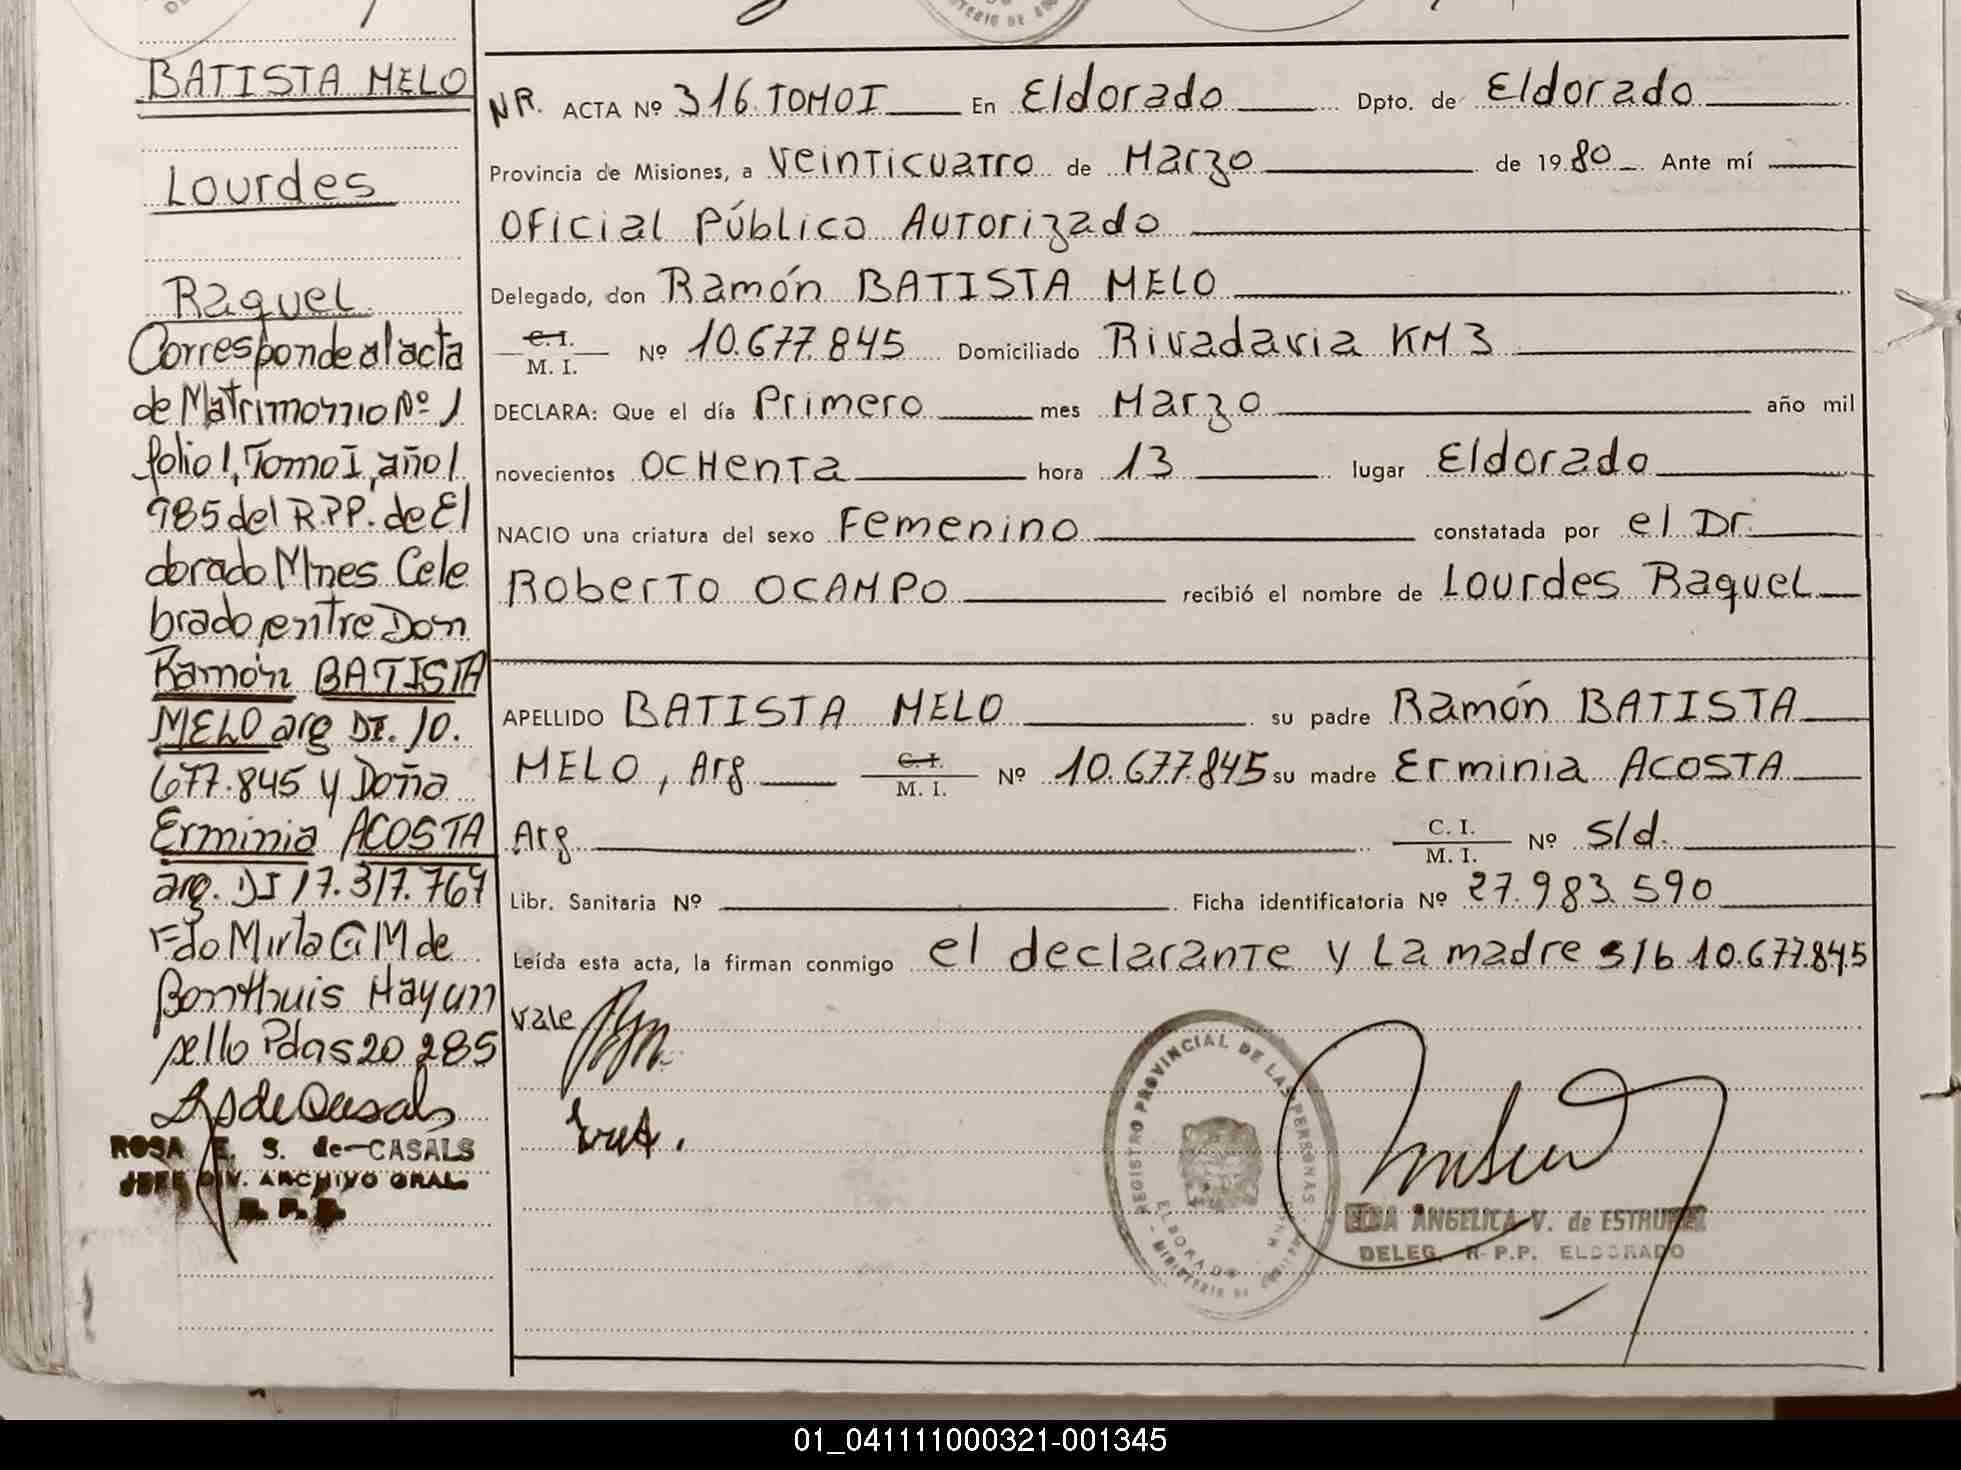 BATISTA MELO
Lourdes
Raquel
Corresponde al acta
de Matrimonio Nº 1
folio 1, Tomo I, año 1
985 del R.P.P. de El
dorado Mnes Cele
brado entre Don
Ramón BATISTA
MELO arg DI. 10.
677.845 y Doña
Erminia ACOSTA
arg. DI 17.317.767
Fdo Mirta G M de
Bonthuis Hay un
sello Pdas 20 285
ROSA E. S. de CASALS
JEFE DIV. ARCHIVO GRAL.
R. P. P.
NR. ACTA Nº 316 TOMO I En Eldorado Dpto. de Eldorado
Provincia de Misiones, a Veinticuatro de Marzo de 1980 Ante mí
Oficial Público Autorizado
Delegado, don Ramón BATISTA MELO
C.I. M. I. Nº 10.677.845 Domiciliado Rivadavia KM 3
DECLARA: Que el día Primero mes Marzo año mil
novecientos OCHenta hora 13 lugar Eldorado
NACIO una criatura del sexo Femenino constatada por el Dr.
Roberto OCAMPO recibió el nombre de Lourdes Raquel
APELLIDO BATISTA MELO su padre Ramón BATISTA
MELO, Arg C.I. M. I. Nº 10.677.845 su madre Erminia ACOSTA
Arg C. I. M. I. Nº S/d.
Libr. Sanitaria Nº Ficha identificatoria Nº 27.983.590
Leída esta acta, la firman conmigo el declarante y La madre s/b 10.677.845
Vale
REGISTRO PROVINCIAL DE LAS PERSONAS
ELDORADO
MINISTERIO DE
ELBA ANGELICA V. de
DELEG. R.P.P. ELDORADO
01_041111000321-001345